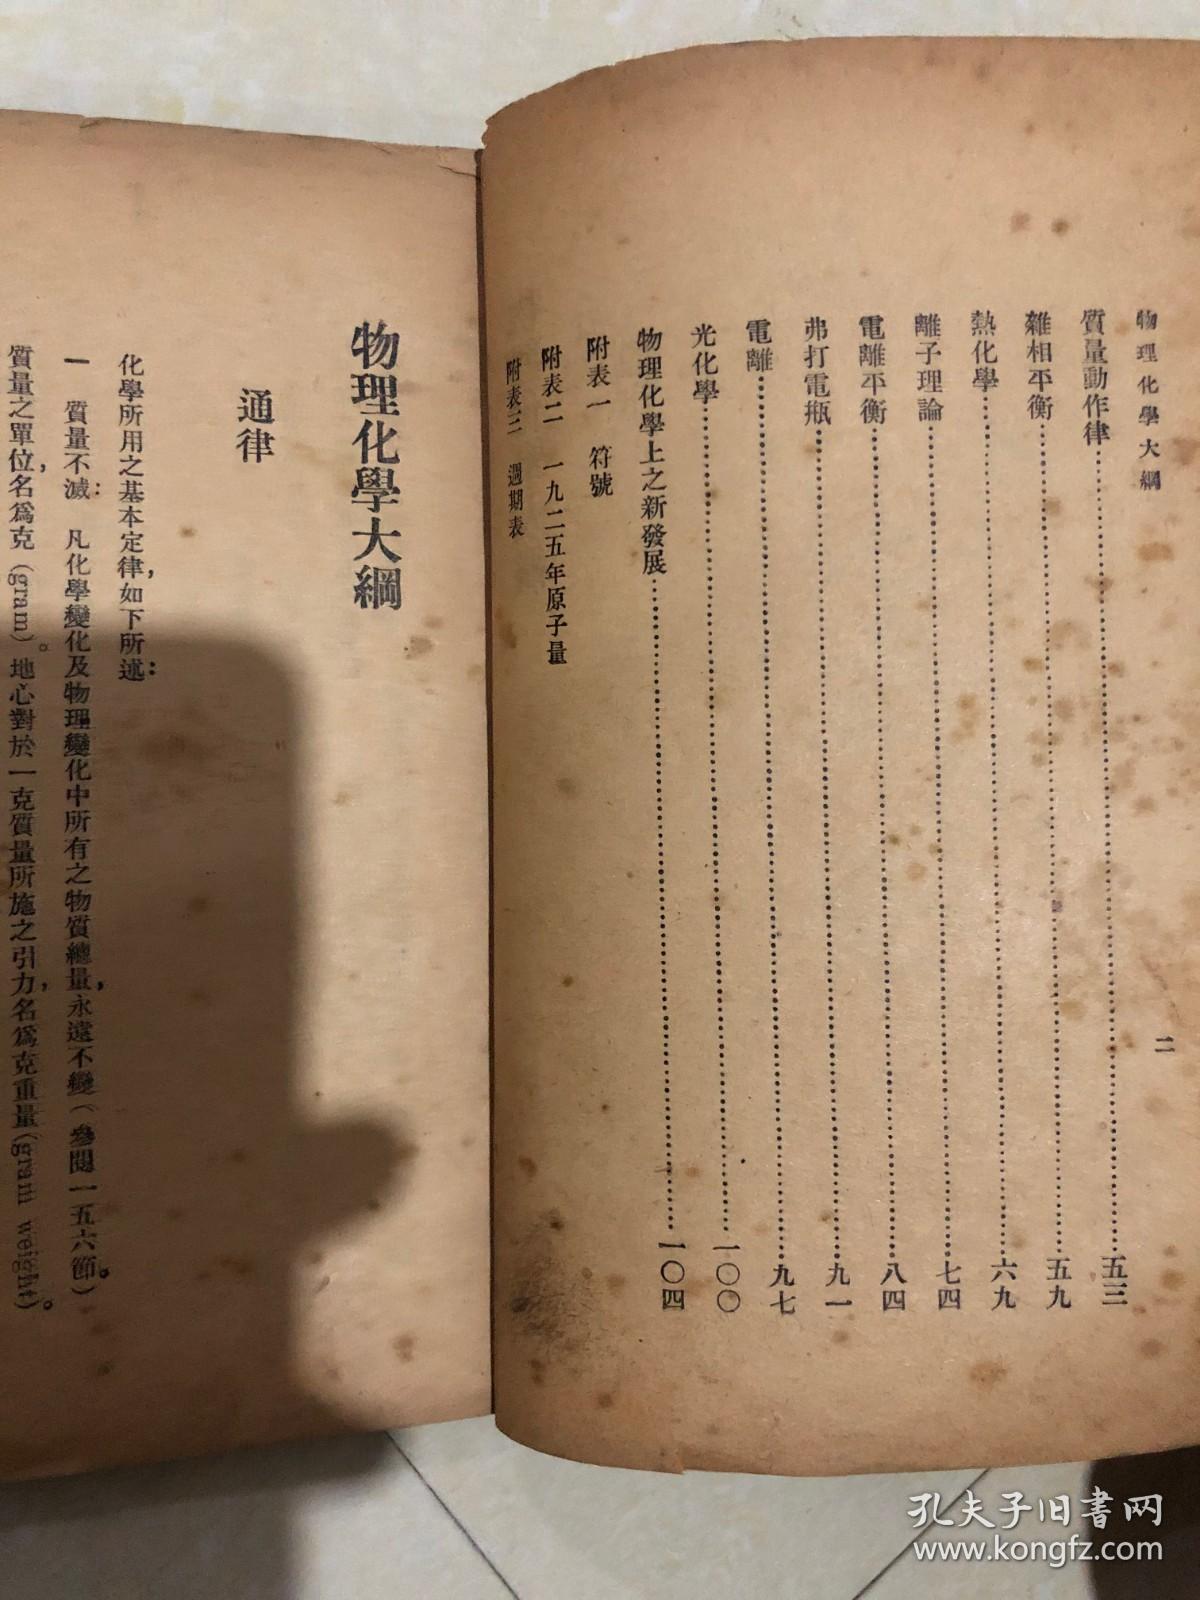 物理化學大綱
二
質量動作律……五三
雜相平衡……五九
熱化學……六九
離子理論……七四
電離平衡……八四
弗打電瓶……九一
電離……九七
光化學……一〇〇
物理化學上之新發展……一〇四
附表一 符號
附表二 一九二五年原子量
附表三 週期表
物理化學大綱
通律
化學所用之基本定律，如下所述：
一 質量不滅：凡化學變化及物理變化中所有之物質總量，永遠不變（參閱一五六節。）
質量之單位，名爲克（gram）。地心對於一克質量所施之引力，名爲克重量（gram weight）。
孔夫子旧书网
www.kongfz.com